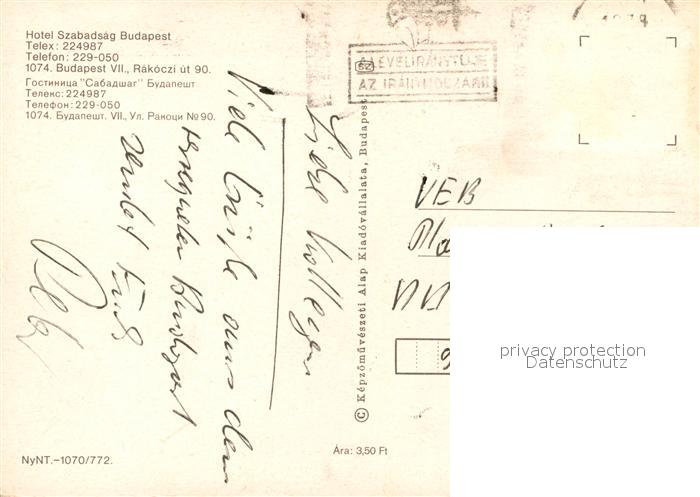 Hotel Szabadság Budapest
Telex: 224987
Telefon: 229-050
1074. Budapest VII., Rákóczi út 90.
Гостиница "Сабадшаг" Будапешт
Телекс: 224987
Телефон: 229-050
1074. Будапешт. VII., Ул. Ракоци № 90.
Liebe Kollegen
Viele Grüße aus dem
Budapest
sendet Euch
LEVÉLIRÁNYÍTÓJE
AZ IRÁNYÍTÓSZÁM!
© Képzőművészeti Alap Kiadóvállalata, Budapest
VEB
privacy protection
Datenschutz
Ára: 3,50 Ft
NyNT.–1070/772.